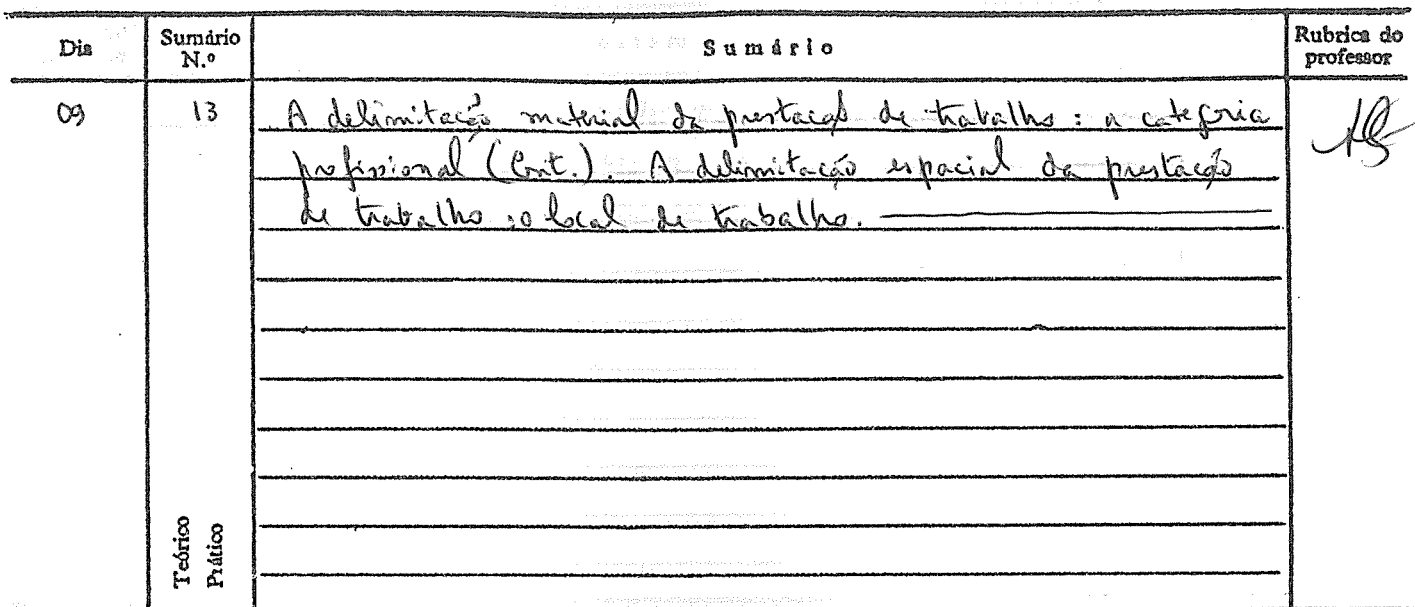 Dia Sumário N.º Sumário Rubrica do professor
09 13 A delimitação material da prestação de trabalho : a categoria
profissional (Cont.). A delimitação espacial da prestação
de trabalho : o local de trabalho.
Teórico
Prático